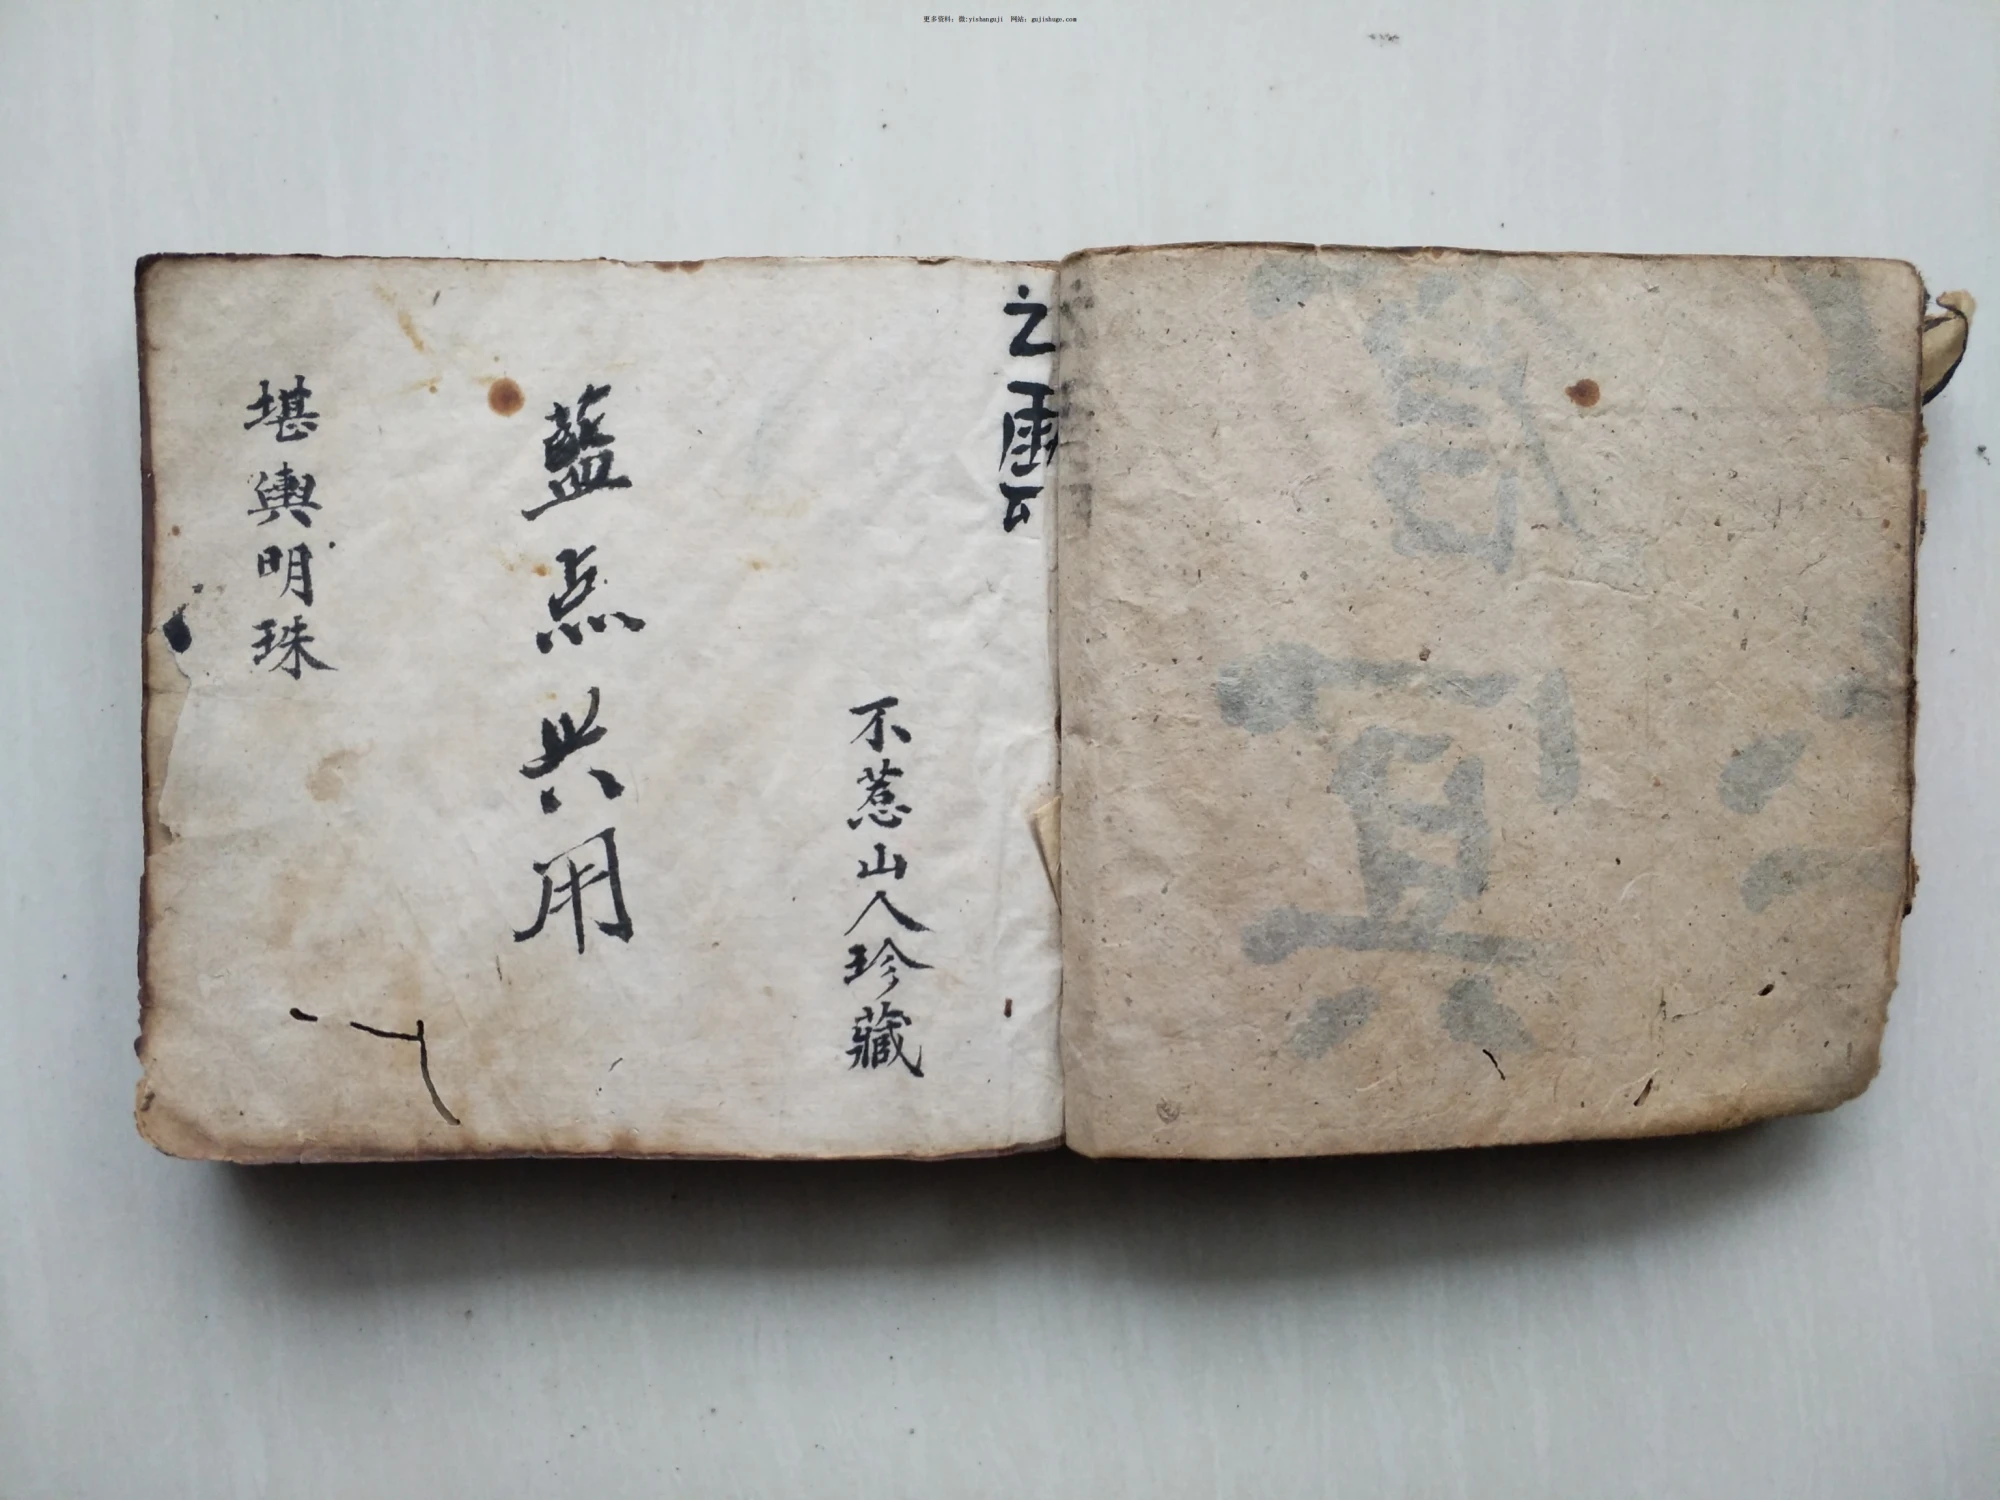 更多资料：微:yishanguji 网站：gujishuge.com
之雲
不惹山人珍藏
藍点共用
堪輿明珠